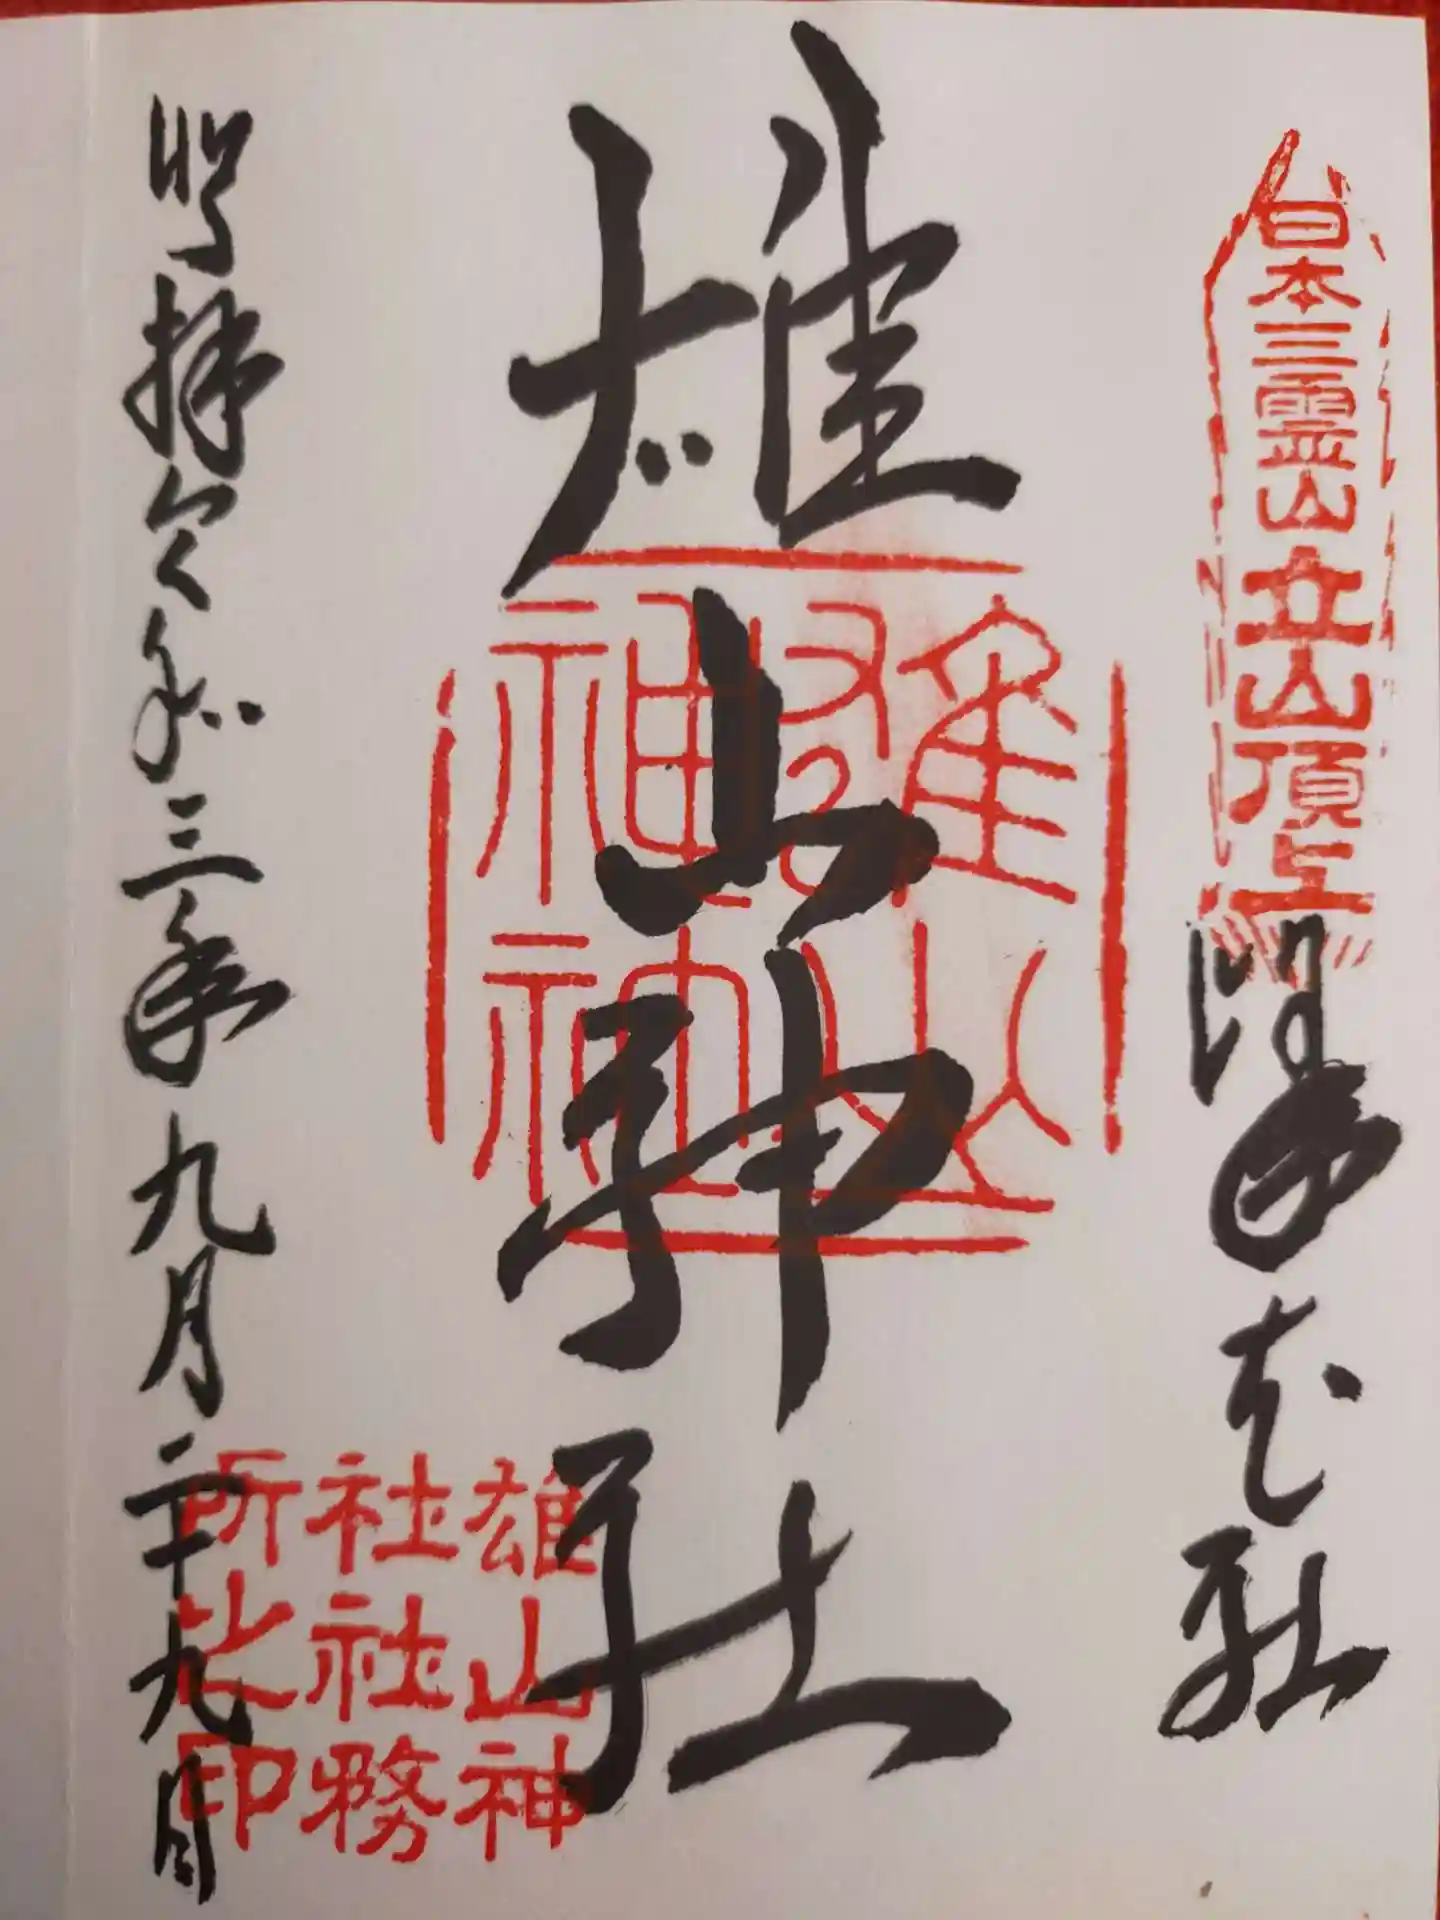 日本三霊山立山頂上
峰本社
雄山神社
雄山
神社
拝令和三年九月二十九日
雄山神
社社務
所之印